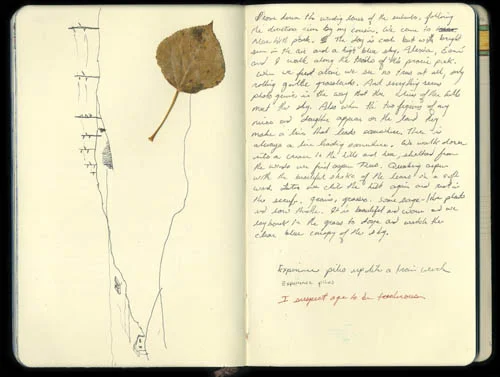 down the winding lanes of the suburbs, following
the directions given by my cousin. We come to
Nose Hill park. The day is cool but with bright
sun in the air and a high blue sky. and I walk along the trails of this prairie park.
When we first arrive we see no trees at all, only
rolling gentle grasslands. And everything seems
photogenic in the way that the lines of the hills
meet the sky. Also when the two figures of my
niece and daughter appear on the land they
make a line that leads somewhere. There is
always a line leading somewhere. We walk down
into a crease in the hills and here, sheltered from
the winds we find aspen trees. Quaking aspen
with the beautiful shake of the leaves in a soft
wind. Later we climb the hill again and rest in
the scrub, grains, grasses, some sage-like plants
and low thistle. It is beautiful and warm and we
lay back in the grass to doze and watch the
clear blue canopy of the sky.
Experience piles up like a train wreck
Experience piles
I suspect age to be treacherous